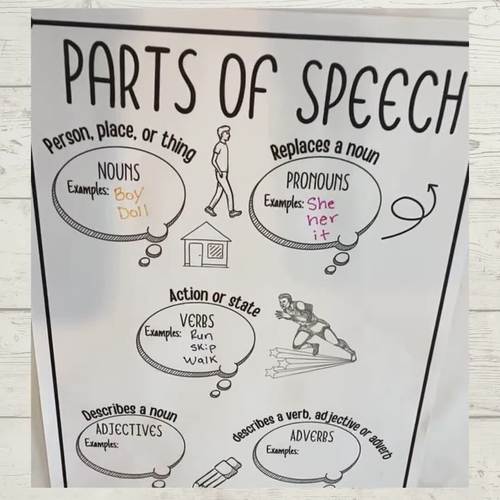 PARTS OF SPEECH
Person, place, or thing
NOUNS
Examples: Boy
Doll
Replaces a noun
PRONOUNS
Examples: She
her
it
Action or state
VERBS
Examples: Run
Skip
Walk
Describes a noun
ADJECTIVES
Examples:
describes a verb, adjective or adverb
ADVERBS
Examples: